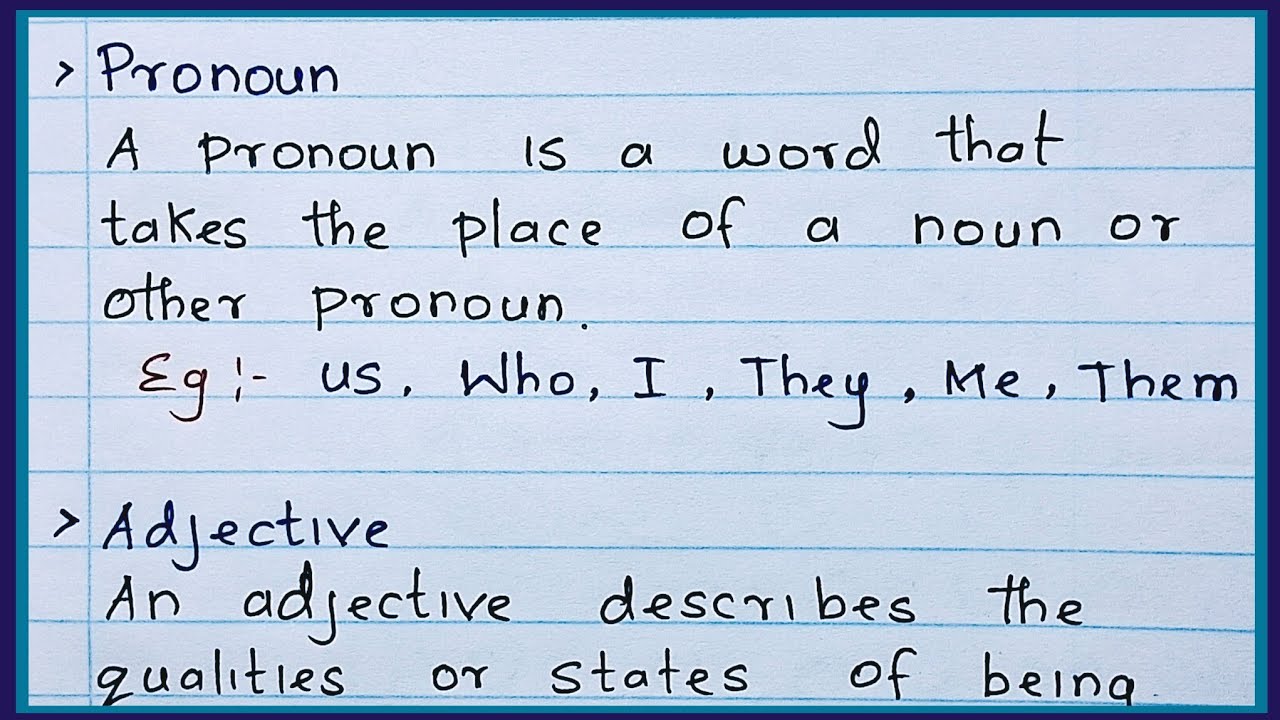 > Pronoun
A pronoun is a word that
takes the place of a noun or
other pronoun.
Eg :- us, Who, I, They, Me, Them
> Adjective
An adjective describes the
qualities or states of being